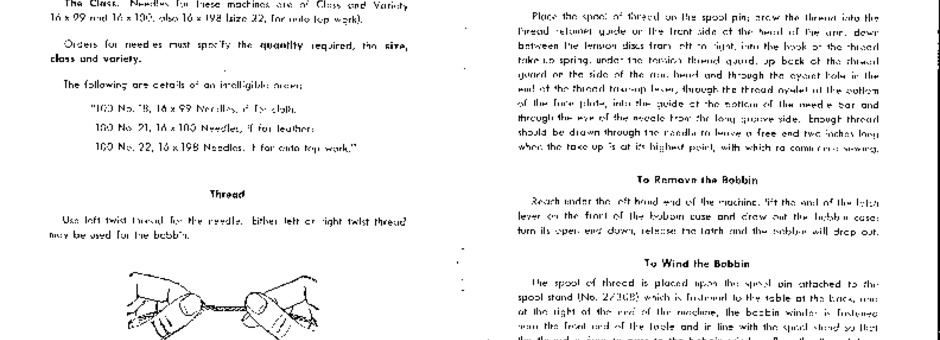 The Class. Needles for these machines are of Class and Variety
16 x 99 and 16 x 100, also 16 x 198 (size 22, for auto top work).
Orders for needles must specify the quantity required, the size,
class and variety.
The following are details of an intelligible order:
"100 No. 18, 16 x 99 Needles, if for cloth.
100 No. 21, 16 x 100 Needles, if for leather.
100 No. 22, 16 x 198 Needles, if for auto top work."
Thread
Use left twist thread for the needle. Either left or right twist thread
may be used for the bobbin.
Place the spool of thread on the spool pin; draw the thread into the
thread retainer guide on the front side of the head of the arm, down
between the tension discs from left to right, into the hook of the thread
take-up spring, under the tension thread guard, up back of the thread
guard on the side of the arm head and through the eyelet hole in the
end of the thread take-up lever, through the thread eyelet at the bottom
of the face plate, into the guide at the bottom of the needle bar and
through the eye of the needle from the long groove side. Enough thread
should be drawn through the needle to leave a free end two inches long
when the take-up is at its highest point, with which to commence sewing.
To Remove the Bobbin
Reach under the left hand end of the machine, lift the end of the latch
lever on the front of the bobbin case and draw out the bobbin case;
turn its open end down, release the latch and the bobbin will drop out.
To Wind the Bobbin
The spool of thread is placed upon the spool pin attached to the
spool stand (No. 27308) which is fastened to the table at the back, and
at the right of the end of the machine, the bobbin winder is fastened
near the front end of the table and in line with the spool stand so that